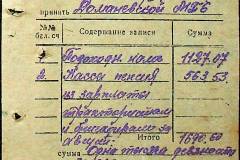 принять Романевской МТС
№№ бал. сч. Содержание записи Сумма
1. Подоходн. налог 1127.07
2. Кассы пенсия 563.53
из зарплаты
трактористам
и бригадирам за
август.
Итого 1690.60
сумма Одна тысяча